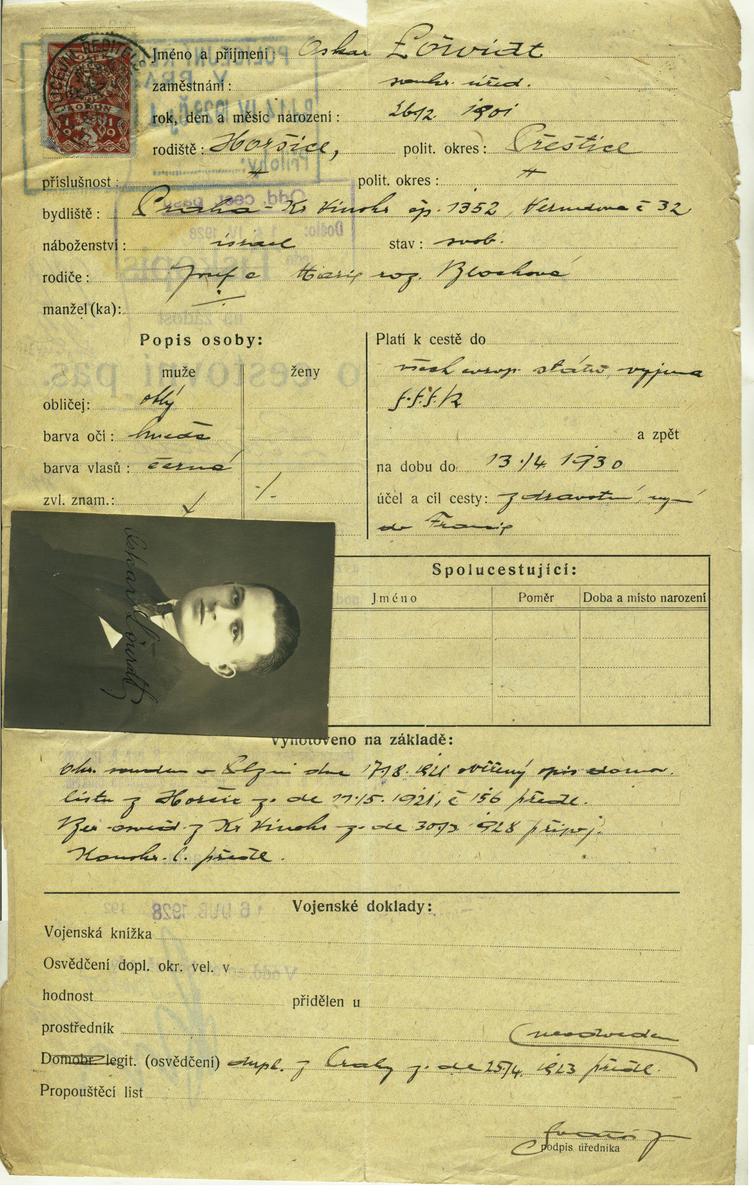 Jméno a příjmení Oskar Löwidt
zaměstnání: soukr. úřed.
rok, den a měsíc narození: 26/2 1901
rodiště: Horšice, polit. okres: Přeštice
příslušnost: " polit. okres: "
bydliště: Praha - Kr Vinohr čp. 1352, č 32
náboženství: israel stav: svob.
rodiče: Josef a Marie roz. Blochová
manžel(ka):
Popis osoby:
muže ženy
obličej: oblý
barva očí: hnědá
barva vlasů: černá
zvl. znam.: ./.
Platí k cestě do
všech evrop. států, vyjma
a zpět
na dobu do 13./4 1930
účel a cíl cesty: zdravotní, nyní
do Francie
Oskar Löwidt
Spolucestující:
Jméno Poměr Doba a místo narození
Vyhotoveno na základě:
Okr. soudem v Plzni dne 17/8. 1921 ověřený opis domov.
listu z Horšic z. de 11./5. 1921, č 156 předl.
z Kr Vinohr z. de 30/3 1928 připoj.
předl.
Vojenské doklady:
Vojenská knížka
Osvědčení dopl. okr. vel. v
hodnost přidělen u
prostředník neodveden
Domobr. legit. (osvědčení) dopl. z Prahy z. de 25/4. 1923 předl.
Propouštěcí list
podpis úředníka